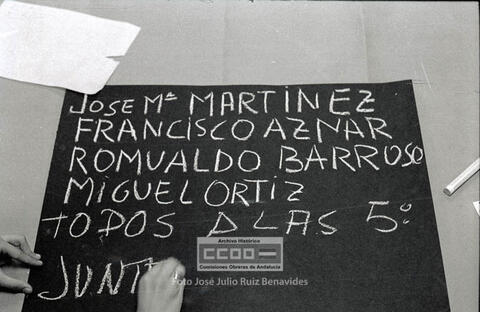 JOSE Mª MARTINEZ
FRANCISCO AZNAR
ROMUALDO BARROSO
MIGUEL ORTIZ
TODOS A LAS 5º
JUNT
Archivo Histórico
CCOO
Comisiones Obreras de Andalucía
Foto José Julio Ruiz Benavides